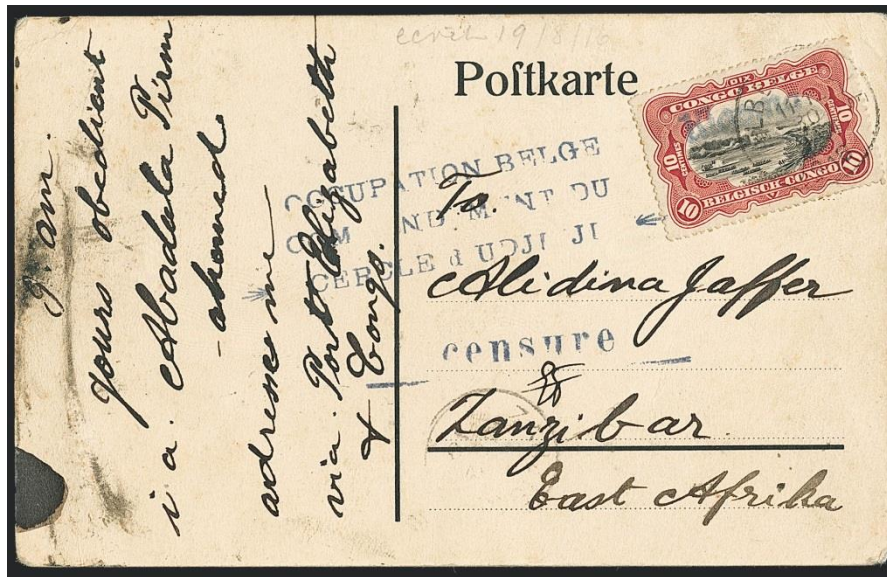 19/8/16
Postkarte
DIX
CONGO BELGE
10 CENTIMES 10
10 BELGISCH-CONGO 10
OCCUPATION BELGE
COMMANDEMENT DU
CERCLE d UDJIJI
censure
To.
Alidina Jaffer
Zanzibar
East Afrika
I am.
yours obedient
i a. Abadala Pirm
-ahomed
adresse me
via. Port Elizabeth
& Congo.